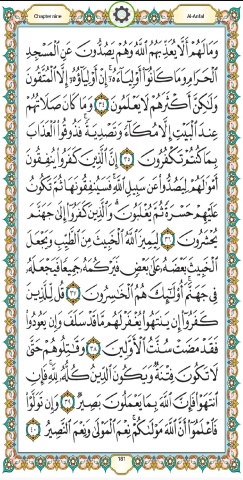 Chapter nine
Al-Anfal
وَمَا لَهُمْ أَلَّا يُعَذِّبَهُمُ اللَّهُ وَهُمْ يَصُدُّونَ عَنِ الْمَسْجِدِ
الْحَرَامِ وَمَا كَانُوا أَوْلِيَاءَهُ إِنْ أَوْلِيَاؤُهُ إِلَّا الْمُتَّقُونَ
وَلَكِنَّ أَكْثَرَهُمْ لَا يَعْلَمُونَ ٣٤ وَمَا كَانَ صَلَاتُهُمْ
عِندَ الْبَيْتِ إِلَّا مُكَاءً وَتَصْدِيَةً فَذُوقُوا الْعَذَابَ
بِمَا كُنتُمْ تَكْفُرُونَ ٣٥ إِنَّ الَّذِينَ كَفَرُوا يُنفِقُونَ
أَمْوَالَهُمْ لِيَصُدُّوا عَن سَبِيلِ اللَّهِ فَسَيُنفِقُونَهَا ثُمَّ تَكُونُ
عَلَيْهِمْ حَسْرَةً ثُمَّ يُغْلَبُونَ وَالَّذِينَ كَفَرُوا إِلَى جَهَنَّمَ
يُحْشَرُونَ ٣٦ لِيَمِيزَ اللَّهُ الْخَبِيثَ مِنَ الطَّيِّبِ وَيَجْعَلَ
الْخَبِيثَ بَعْضَهُ عَلَى بَعْضٍ فَيَرْكُمَهُ جَمِيعًا فَيَجْعَلَهُ
فِي جَهَنَّمَ أُولَئِكَ هُمُ الْخَاسِرُونَ ٣٧ قُل لِّلَّذِينَ
كَفَرُوا إِن يَنتَهُوا يُغْفَرْ لَهُم مَّا قَدْ سَلَفَ وَإِن يَعُودُوا
فَقَدْ مَضَتْ سُنَّتُ الْأَوَّلِينَ ٣٨ وَقَاتِلُوهُمْ حَتَّى
لَا تَكُونَ فِتْنَةٌ وَيَكُونَ الدِّينُ كُلُّهُ لِلَّهِ فَإِنِ
انتَهَوْا فَإِنَّ اللَّهَ بِمَا يَعْمَلُونَ بَصِيرٌ ٣٩ وَإِن تَوَلَّوْا
فَاعْلَمُوا أَنَّ اللَّهَ مَوْلَاكُمْ نِعْمَ الْمَوْلَى وَنِعْمَ النَّصِيرُ ٤٠
181